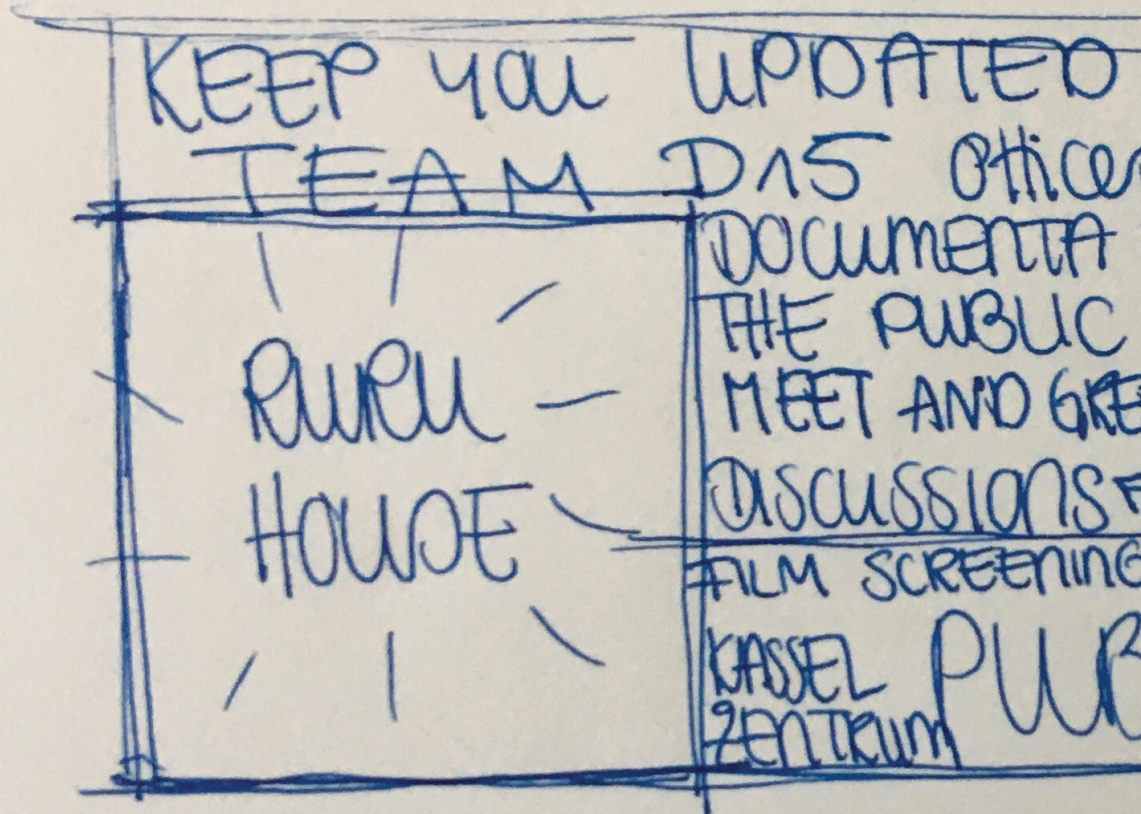 KEEP YOU UPDATED
TEAM D15 Office
DOCUMENTA
THE PUBLIC
MEET AND GREE
DISCUSSIONS
FILM SCREENING
KASSEL
ZENTRUM
PUB
RURU
HOUSE